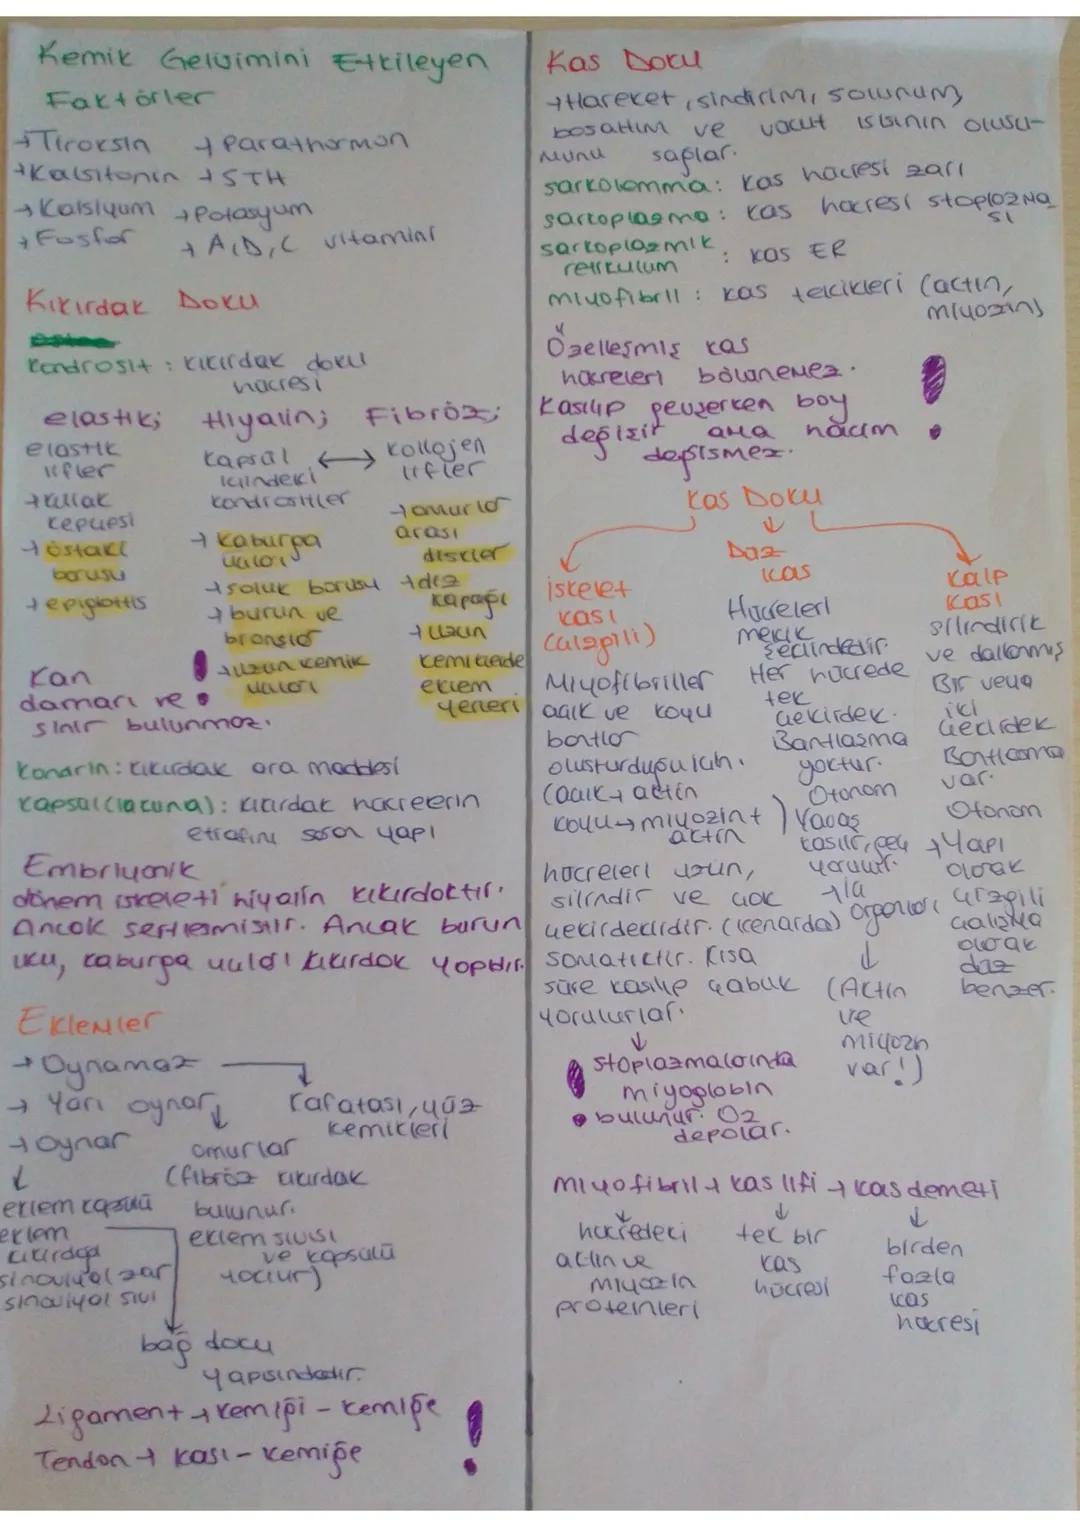 Kemik Gelişimini Etkileyen
Faktörler
→Tiroksin → Parathormon
→Kalsitonin → STH
→ Kalsiyum → Potasyum
→ Fosfor → A,D,C vitamini
Kıkırdak Doku
Kondrosit : kıkırdak doku
hücresi
elastik;
elastik
lifler
→kulak
kepçesi
→ östaki
borusu
→ epiglottis
Hiyalin;
Kapsül
içindeki
kondrositler
→ kaburga
uçları
→soluk borusu
→ burun ve
bronşlar
→uzun kemik
uçları
Fibröz;
kollojen
lifler
→omurlar
arası
diskler
→diz
kapağı
→ uzun
kemiklerde
eklem
yerleri
Kan
damarı ve
sinir bulunmaz.
Kondrin: kıkırdak ara maddesi
Kapsül(lacuna): kıkırdak hücrelerin
etrafını saran yapı
Embriyonik
dönem iskeleti hiyalin kıkırdaktır.
Ancak sertleşmiştir. Ancak burun
ucu, kaburga uçları kıkırdak yapıdır.
Eklemler
→ Oynamaz
kafatası, yüz
kemikleri
→ Yarı oynar
omurlar
(fibröz kıkırdak
bulunur.
eklem sıvısı
ve kapsülü
yoktur)
→ Oynar
eklem kapsülü
eklem
kıkırdağı
sinoviyal zar
sinoviyal sıvı
bağ doku
yapısındadır.
Ligament → kemiği - kemiğe
Tendon → kası - kemiğe
Kas Doku
→Hareket, sindirim, solunum,
boşaltım ve vücut ısısının oluşu-
munu sağlar.
sarkolemma: kas hücresi zarı
sarkoplazma: kas hücresi stoplazma
sı
sarkoplazmik
retikulum : kas ER
miyofibril : kas telcikleri (actin,
miyozin)
Özelleşmiş kas
hücreleri bölünemez.
Kasılıp gevşerken boy
değişir ama hacim
değişmez.
Kas Doku
iskelet
kası
(çizgili)
Miyofibriller
açık ve koyu
bantlar
oluşturduğu için.
(açık→ aktin
koyu→miyozin+
actin )
hücreleri uzun,
silindir ve çok
çekirdeklidir. (kenarda)
somatiktir. Kısa
süre kasılıp çabuk
yorulurlar.
stoplazmalarında
miyoglobin
bulunur. O2
depolar.
Düz
kas
Hücreleri
mekik
şeklindedir.
Her hücrede
tek
çekirdek.
Bantlaşma
yoktur.
Otonom
Yavaş
kasılır, geç
yorulur.
→iç
organlar
(Aktin
ve
miyozin
var!)
Kalp
Kası
silindirik
ve dallanmış
Bir veya
iki
çekirdek
Bantlaşma
var.
Otonom
→Yapı
olarak
çizgili
çalışma
olarak
düz
benzer.
miyofibril → kas lifi → kas demeti
hücredeki
aktin ve
miyozin
proteinleri
tek bir
kas
hücresi
birden
fazla
kas
hücresi